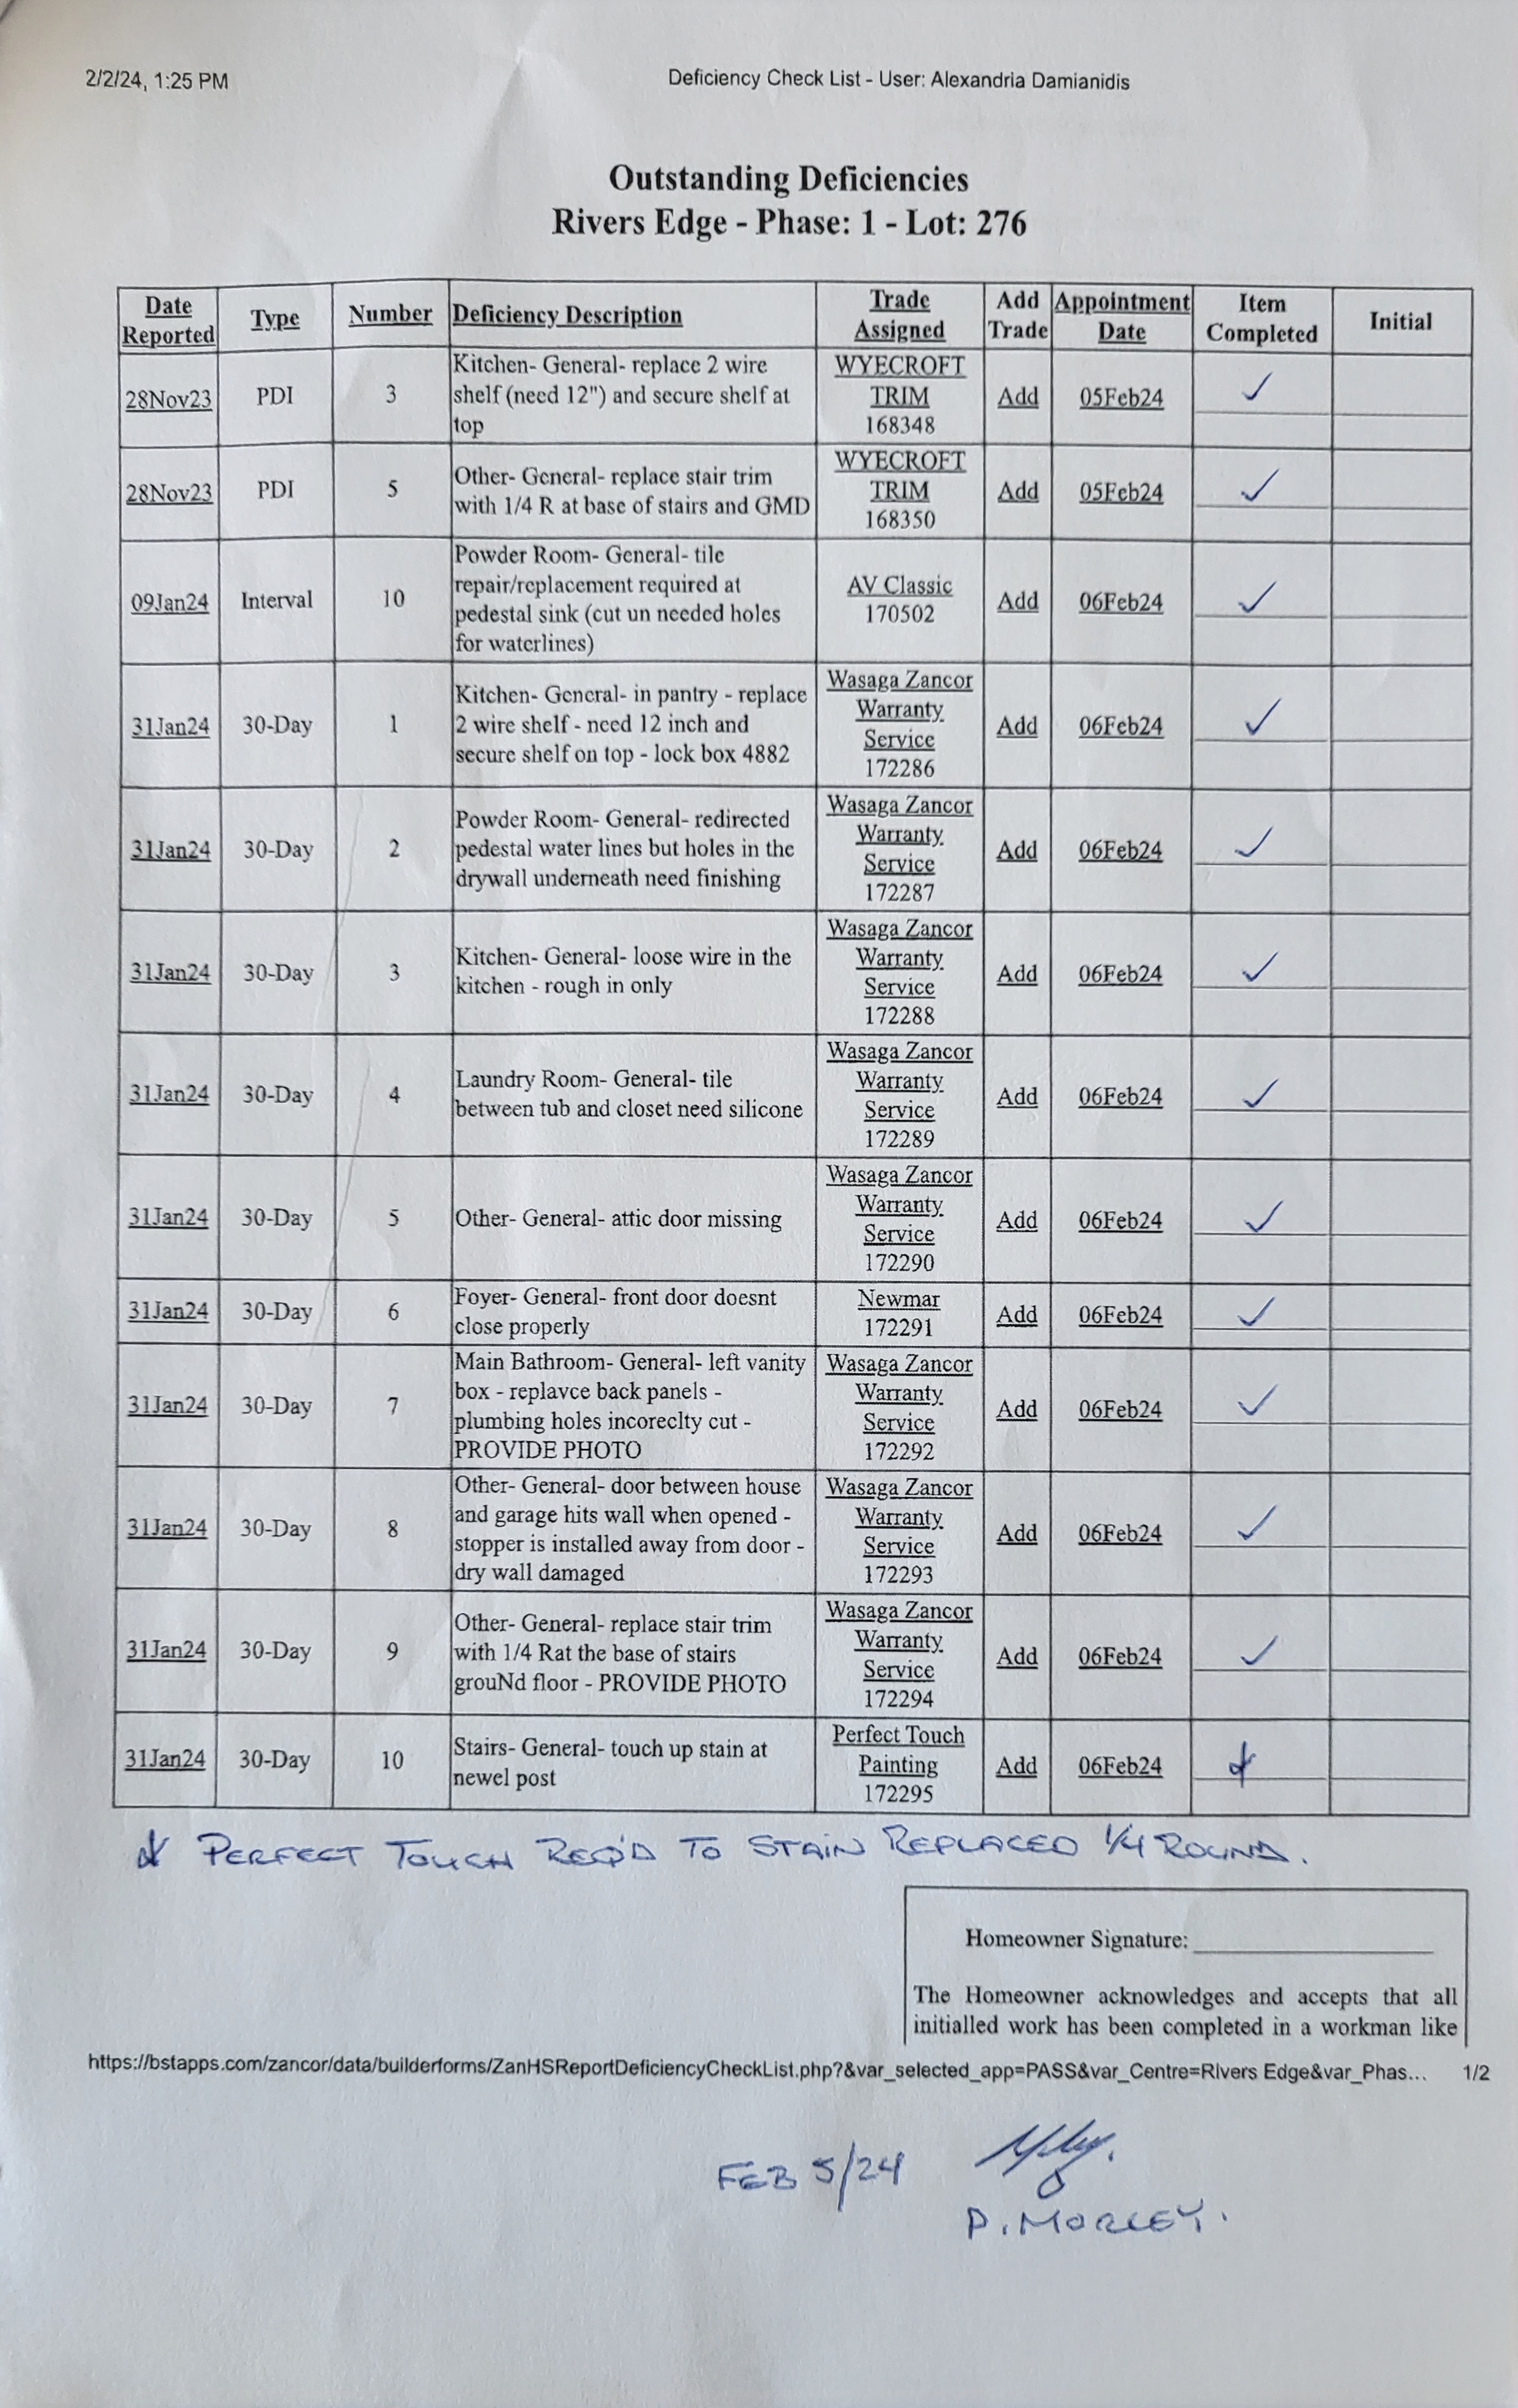 2/2/24, 1:25 PM
Deficiency Check List - User: Alexandria Damianidis
Outstanding Deficiencies
Rivers Edge - Phase: 1 - Lot: 276
Date Reported Type Number Deficiency Description Trade Assigned Add Trade Appointment Date Item Completed Initial
28Nov23 PDI 3 Kitchen- General- replace 2 wire shelf (need 12") and secure shelf at top WYECROFT TRIM 168348 Add 05Feb24 ✓
28Nov23 PDI 5 Other- General- replace stair trim with 1/4 R at base of stairs and GMD WYECROFT TRIM 168350 Add 05Feb24 ✓
09Jan24 Interval 10 Powder Room- General- tile repair/replacement required at pedestal sink (cut un needed holes for waterlines) AV Classic 170502 Add 06Feb24 ✓
31Jan24 30-Day 1 Kitchen- General- in pantry - replace 2 wire shelf - need 12 inch and secure shelf on top - lock box 4882 Wasaga Zancor Warranty Service 172286 Add 06Feb24 ✓
31Jan24 30-Day 2 Powder Room- General- redirected pedestal water lines but holes in the drywall underneath need finishing Wasaga Zancor Warranty Service 172287 Add 06Feb24 ✓
31Jan24 30-Day 3 Kitchen- General- loose wire in the kitchen - rough in only Wasaga Zancor Warranty Service 172288 Add 06Feb24 ✓
31Jan24 30-Day 4 Laundry Room- General- tile between tub and closet need silicone Wasaga Zancor Warranty Service 172289 Add 06Feb24 ✓
31Jan24 30-Day 5 Other- General- attic door missing Wasaga Zancor Warranty Service 172290 Add 06Feb24 ✓
31Jan24 30-Day 6 Foyer- General- front door doesnt close properly Newmar 172291 Add 06Feb24 ✓
31Jan24 30-Day 7 Main Bathroom- General- left vanity box - replavce back panels - plumbing holes incoreclty cut - PROVIDE PHOTO Wasaga Zancor Warranty Service 172292 Add 06Feb24 ✓
31Jan24 30-Day 8 Other- General- door between house and garage hits wall when opened - stopper is installed away from door - dry wall damaged Wasaga Zancor Warranty Service 172293 Add 06Feb24 ✓
31Jan24 30-Day 9 Other- General- replace stair trim with 1/4 Rat the base of stairs grouNd floor - PROVIDE PHOTO Wasaga Zancor Warranty Service 172294 Add 06Feb24 ✓
31Jan24 30-Day 10 Stairs- General- touch up stain at newel post Perfect Touch Painting 172295 Add 06Feb24 *
* PERFECT TOUCH REQ'D TO STAIN REPLACED 1/4 ROUND.
Homeowner Signature:
The Homeowner acknowledges and accepts that all
initialled work has been completed in a workman like
https://bstapps.com/zancor/data/builderforms/ZanHSReportDeficiencyCheckList.php?&var_selected_app=PASS&var_Centre=Rivers Edge&var_Phas... 1/2
FEB 5/24
P. MORLEY.